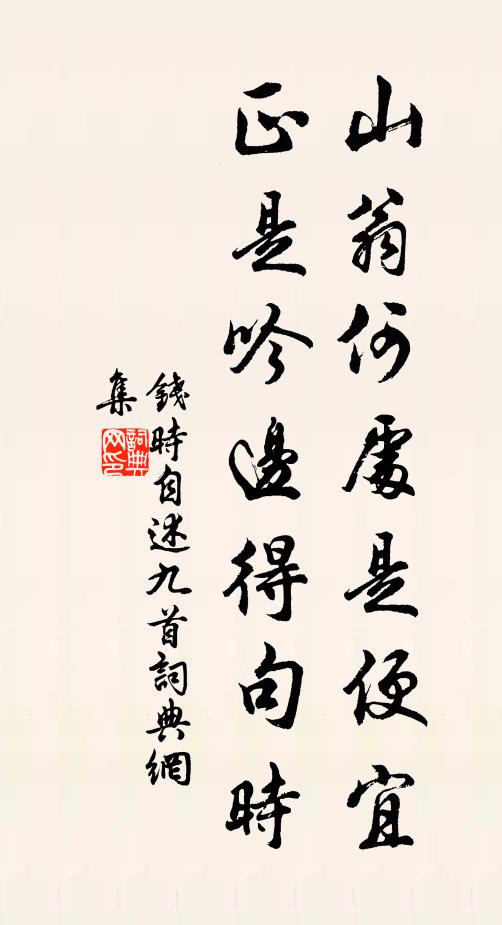 山翁何處是便宜
正是吟邊得句時
錢時自述九首詞典網
集
詞典
网印